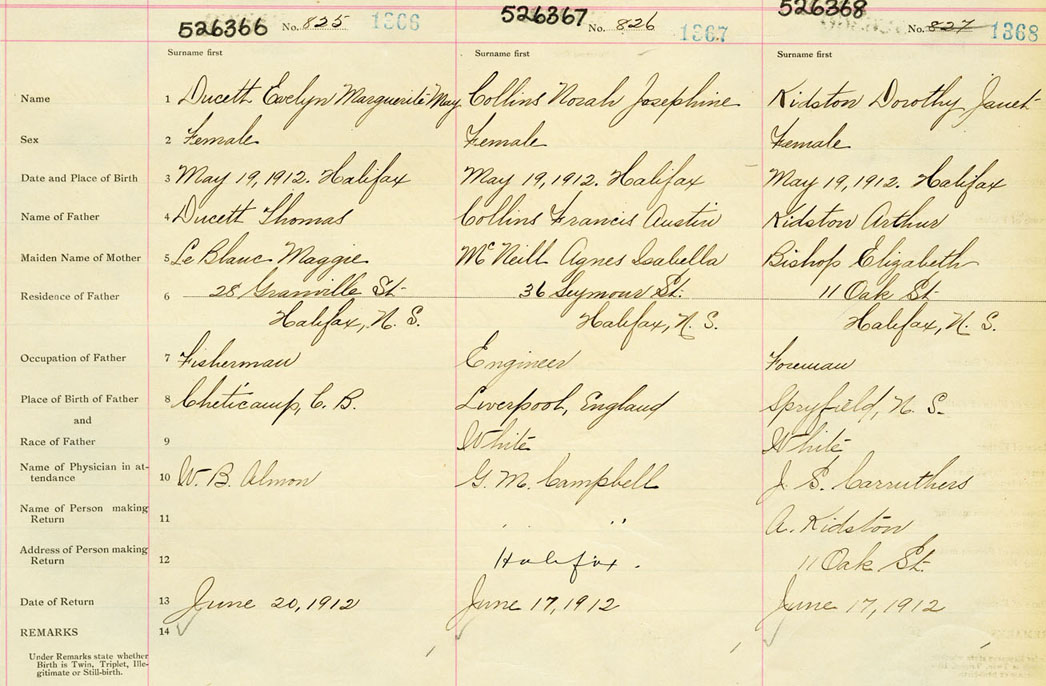 526366 No. 825 1366
526367 No. 826 1367
526368 No. 827 1368
Surname first Surname first Surname first
Name 1 Ducett Evelyn Marguerite May Collins Norah Josephine Kidston Dorothy Janet
Sex 2 Female Female Female
Date and Place of Birth 3 May 19, 1912. Halifax May 19, 1912. Halifax May 19, 1912. Halifax
Name of Father 4 Ducett Thomas Collins Francis Austin Kidston Arthur
Maiden Name of Mother 5 Le Blanc Maggie McNeill Agnes Isabella Bishop Elizabeth
Residence of Father 6 28 Granville St 36 Seymour St. 11 Oak St
Halifax, N. S. Halifax, N. S. Halifax, N. S.
Occupation of Father 7 Fisherman Engineer Foreman
Place of Birth of Father 8 Cheticamp, C. B. Liverpool, England Spryfield, N. S.
and
Race of Father 9 White White
Name of Physician in at-
tendance 10 W. B. Almon G. M. Campbell J. S. Carruthers
Name of Person making
Return 11 " " A. Kidston
Address of Person making
Return 12 Halifax. 11 Oak St
Date of Return 13 June 20, 1912 June 17, 1912 June 17, 1912
REMARKS 14
Under Remarks state whether
Birth is Twin, Triplet, Ille-
gitimate or Still-birth.